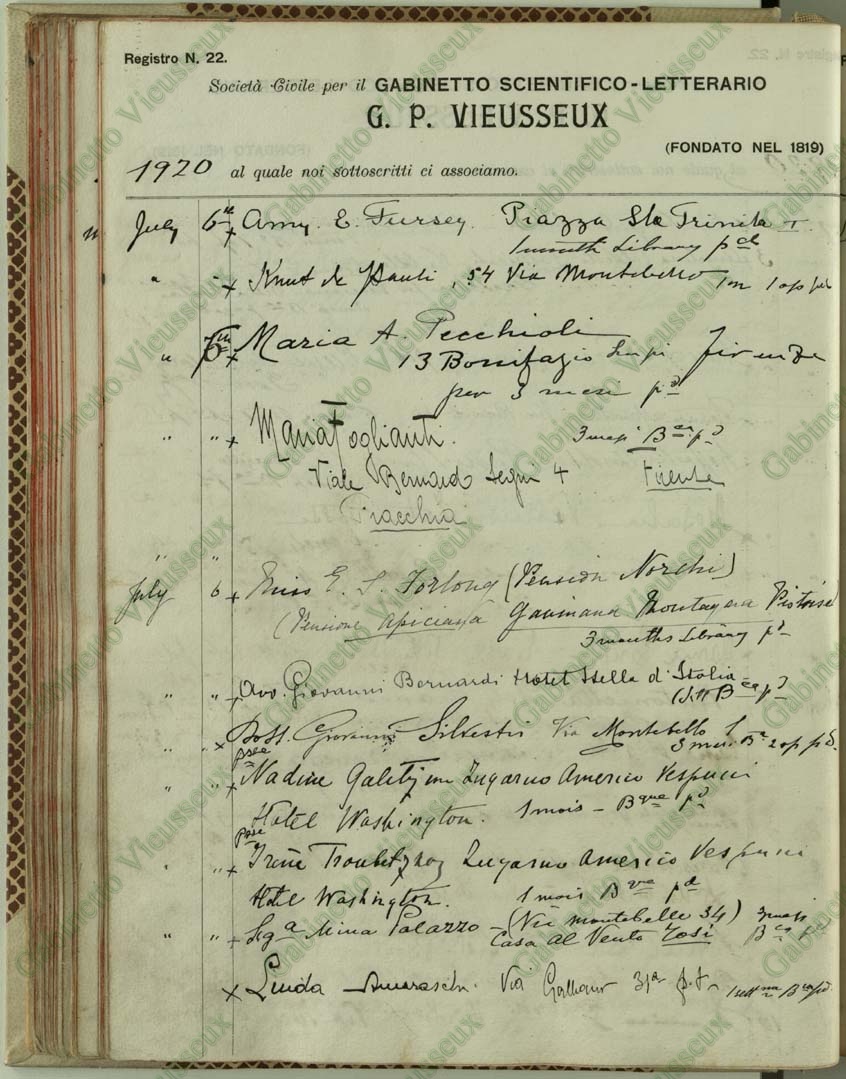 Registro N. 22.
Società Civile per il GABINETTO SCIENTIFICO-LETTERARIO
G. P. VIEUSSEUX
(FONDATO NEL 1819)
1920 al quale noi sottoscritti ci associamo.
July 6 Amy. E. Fursey. Piazza Sta Trinita
1 month Library pd
" 54 Via Montebello 1 m 1 op pd
" Maria A. Pecchioli
13 Bonifazio Lupi Firenze
per 3 mesi pd
" " Maria Foglianti. 3 mesi Bca pd
Viale Bernardo Segni 4 Firenze
Pracchia
" "
July 6 Miss E. S. Forlong (Pension Norchi)
(Pensione Apiciana Gavinana Montagna Pistoiese
3 months Library pd
" " Avv. Giovanni Bernardi Hotel Stella d'Italia
1 sett Bca pd
" " Dott. Giovanni Silvestri Via Montebello 1
3 mesi Bca 2 op pd.
" " Psse Nadine Galitzine Lugarno Americo Vespucci
Hotel Washington. 1 mois - Bque pd
" " Psse Irène Troubetzkoy Lugarno Americo Vespucci
Hotel Washington. 1 mois Bque pd
" " Sga Mina Palazzo - (Via Montebello 34) 3 mesi
Casa al Vento Bca pd
Linda Via 31a p.t. 1 settna Bca pd.
Gabinetto Vieusseux